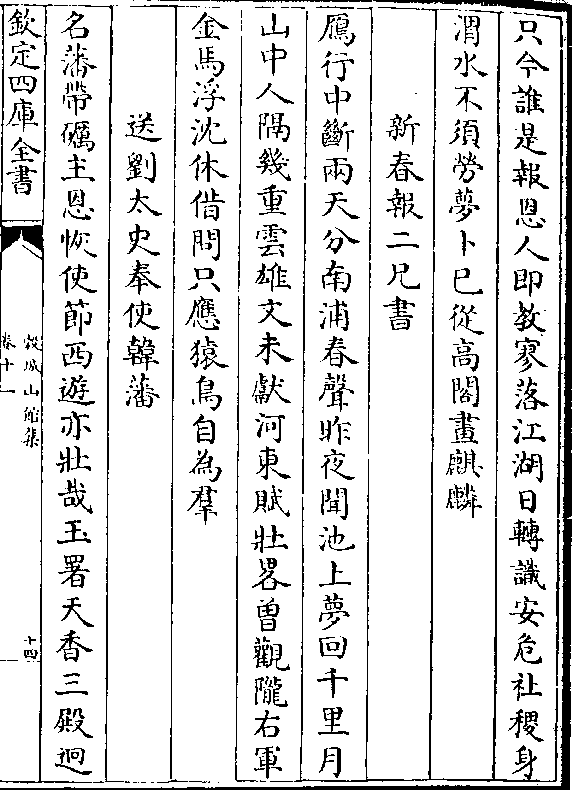 只今誰是報恩人即教寥落江湖日轉識安危社稷身
渭水不須勞夢卜已從高閣畫麒麟
新春報二兄書
鴈行中斷兩天分南浦春聲昨夜聞池上夢回千里月
山中人隔幾重雲雄文未獻河東賦壯畧曾觀隴右軍
金馬浮沈休借問只應猿鳥自為羣
送劉太史奉使韓藩
名藩帶礪主恩恢使節西遊亦壯哉玉署天香三殿迥
欽定四庫全書
穀城山館集
卷十一
十四